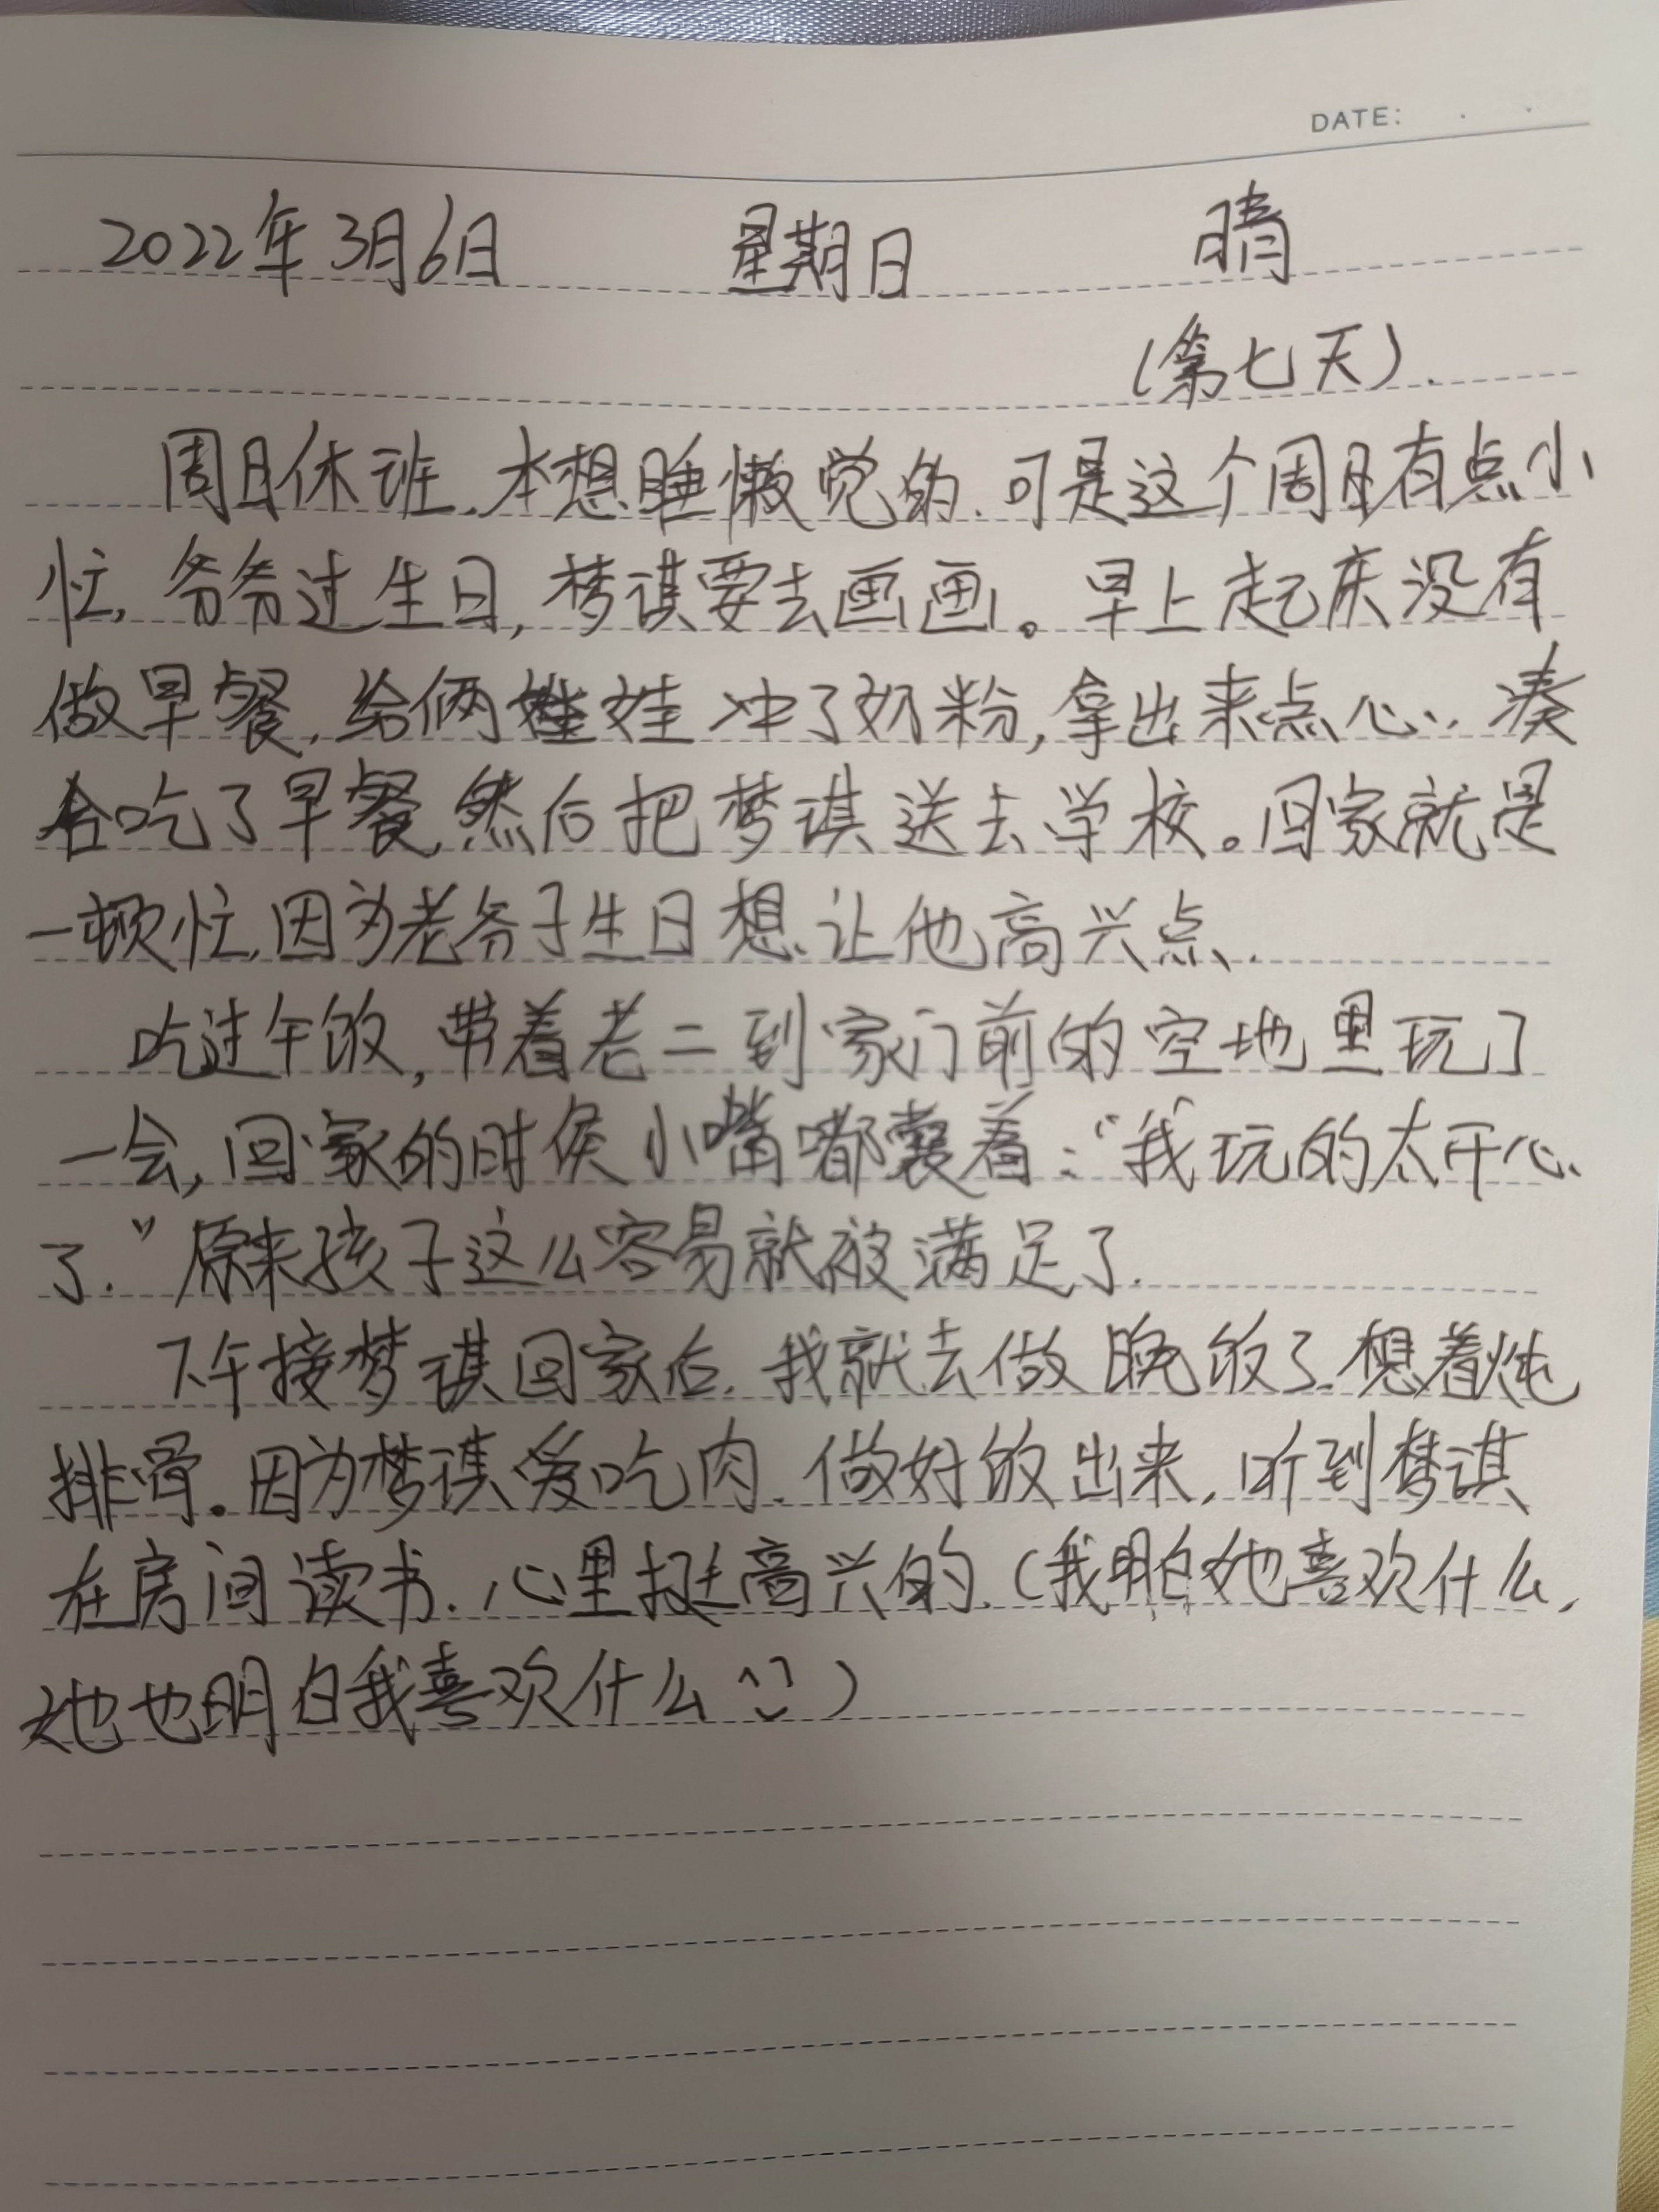 DATE: . .
2022年3月6日 星期日 晴
(第七天).
周日休班.本想睡懒觉的.可是这个周日有点小
忙,爷爷过生日,梦琪要去画画。早上起床没有
做早餐,给俩娃娃冲了奶粉,拿出来点心.凑
合吃了早餐,然后把梦琪送去学校。回家就是
一顿忙,因为老爷子生日想让他高兴点.
吃过午饭,带着老二到家门前的空地里玩了
一会,回家的时侯小嘴嘟囊着:“我玩的太开心
了.”原来孩子这么容易就被满足了.
下午接梦琪回家后.我就去做晚饭了.想着炖
排骨。因为梦琪爱吃肉.做好饭出来,听到梦琪
在房间读书.心里挺高兴的.(我明白她喜欢什么,
她也明白我喜欢什么)